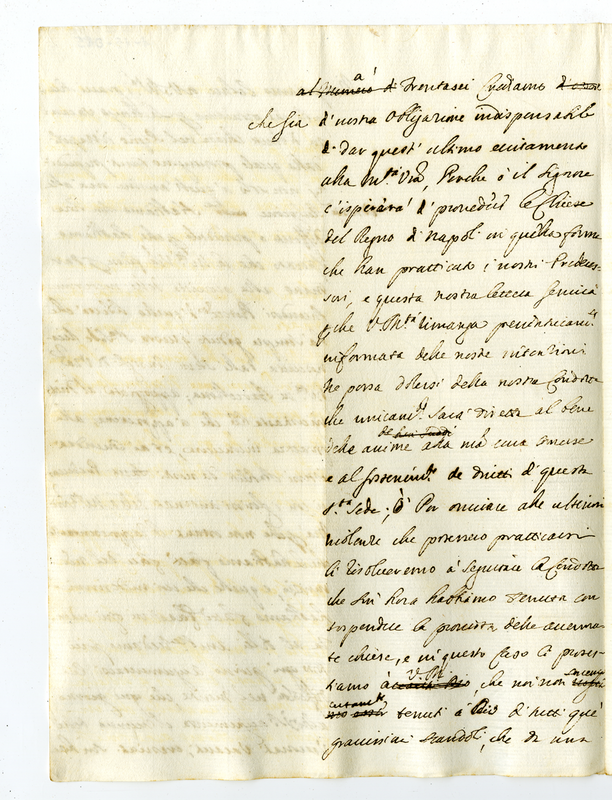 al numero di Trentasei Crediamo
che sia d'nostra obligazione indispensabile
di dar quest' ultimo eccitamento
alla M.tà Vra, Perche ò il Signore
c'ispirarà d' proveder le Chiese
del Regno di Napoli in quella forma
che han pratticato i nostri Predeces-
sori, e questa nostra lettera servirà
che V. M.tà rimanga preventivam.te
informata delle nostre intenzioni
ne possa dolersi della nostra Condotta
che unicam.te sarà diretta al bene
delle anime alla nra cura commesse
e al sostenim.to de dritti d' questa
S.ta Sede; ò Per ovviare alle ulteriori
violenze che potessero pratticarsi
Ci risolveremo à seguitare la Condotta
che fin hora habbiamo tenuta con
sospendere la provista delle accenna-
te chiese, e in questo caso Ci protes-
tiamo à V. M. che noi non
tenuti à Dio d' tutti que'
gravissimi scandoli, che da una